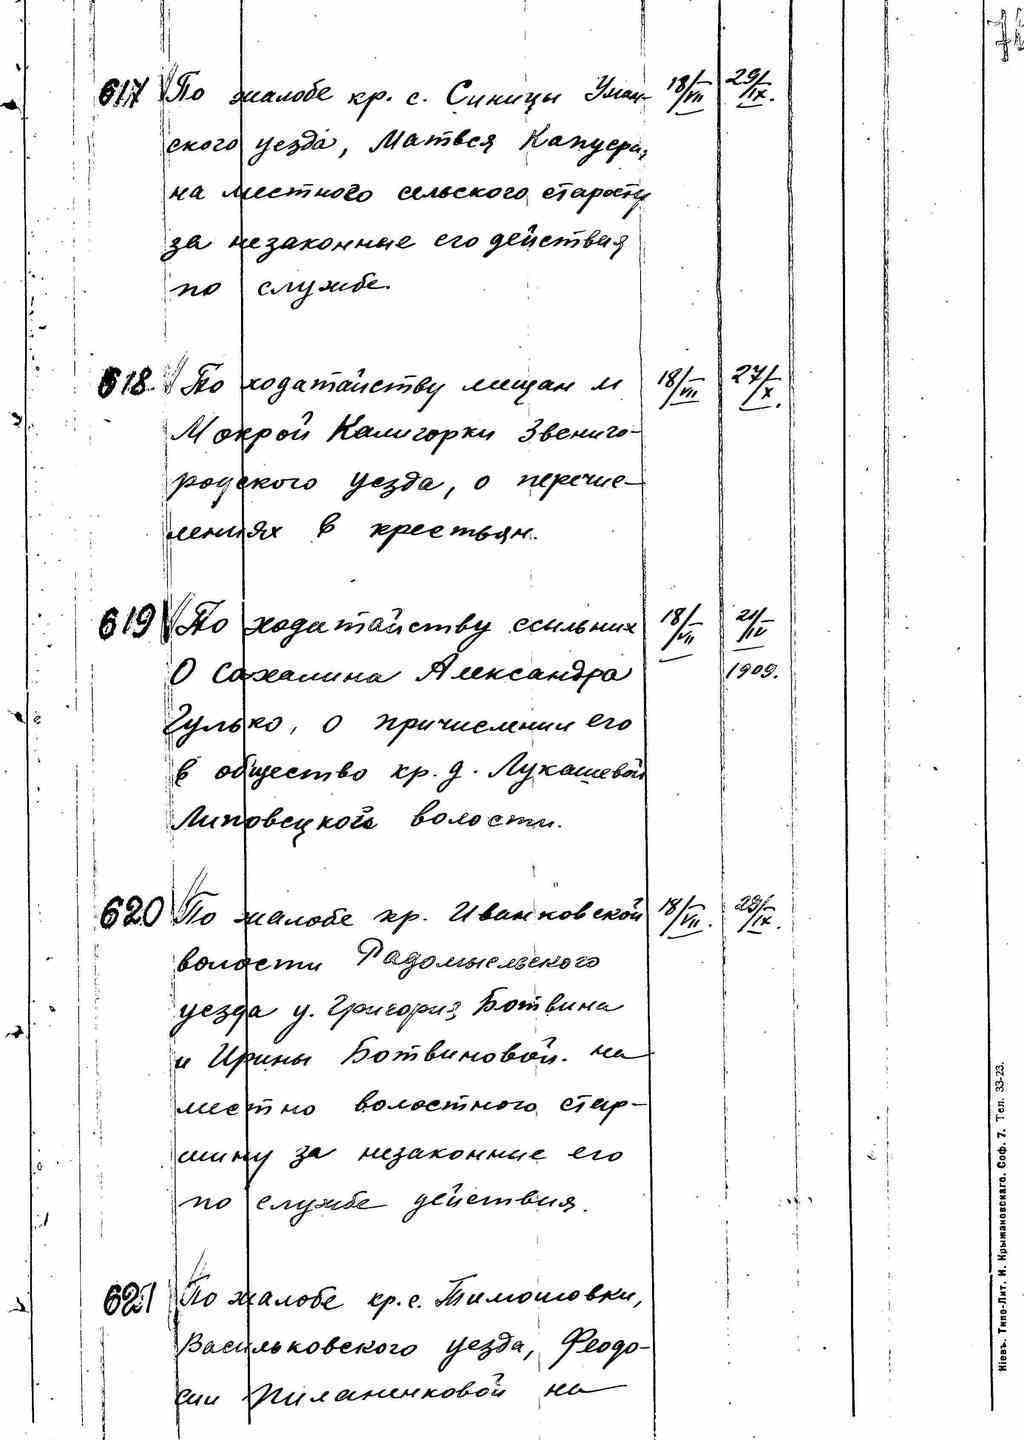 617 По жалобе кр. с. Синицы Уман- 18/VII 29/IX.
ского уезда, Матвея
на местного сельского старосту
за незаконные его действия
по службе.
618 По ходатайству мещан м 18/VII 27/X.
Мокрой Калигорки Звениго-
родского уезда, о перечис-
лениях в крестьян.
619 По ходатайству ссыльних 18/VII 21/IV
О Сахалина Александра 1909.
Гулько, о причислении его
в общество кр. д. Лукашевой
Липовецкой волости.
620 По жалобе кр. Иванковской 18/VII. 29/IX.
волости Радомысльского
уезда у. Григория Ботвина
и Ирины Ботвиновой. на
местно волостного стар-
шину за незаконние его
по службе действия.
621 По жалобе кр. с. Тимошовки,
Васильковского уезда, Феодо-
сии Пиланенковой на
Кіевъ. Типо-Лит. И. Крыжановскаго. Соф. 7. Тел. 33-23.